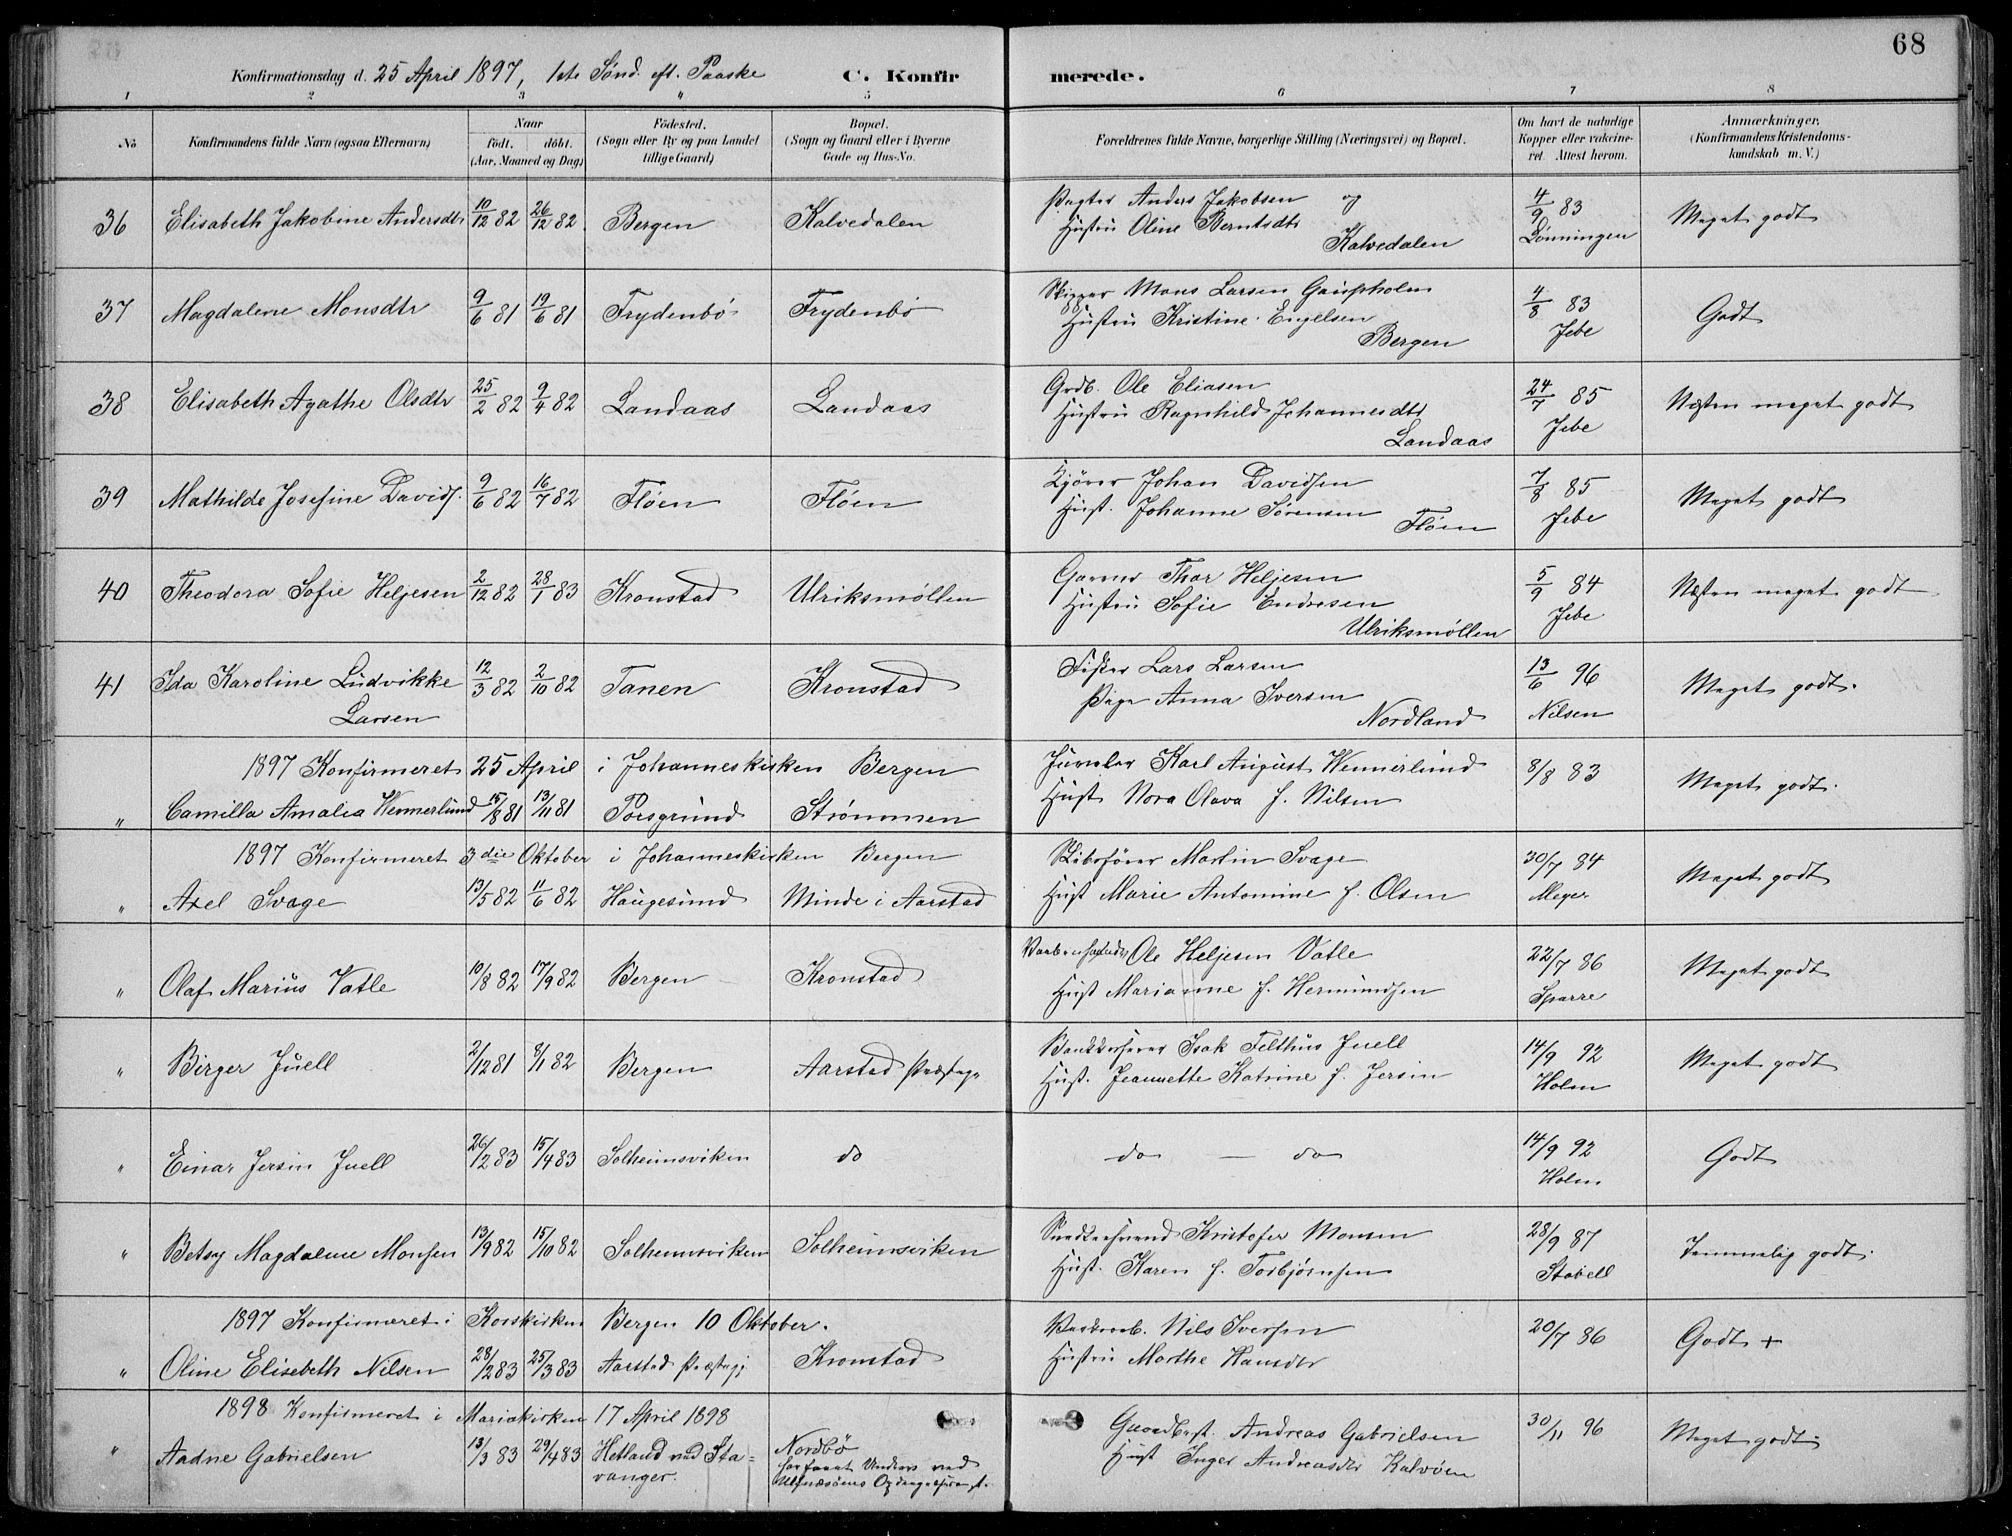 68
Konfirmationsdag d. 25 April 1897, 1ste Sønd. eft. Paaske C. Konfirmerede.
1 2 3 4 5 6 7 8
No Konfirmandens fulde Navn (ogsaa Efternavn) Naar født. døbt. (Aar, Maaned og Dag) Fødested. (Sogn eller By og paa Landet tillige Gaard) Bopæl. (Sogn og Gaard eller i Byerne Gade og Hus-No. Forældrenes fulde Navne, borgerlige Stilling (Næringsvei) og Bopæl. Om havt de naturlige Kopper eller vaccineret. Attest herom. Anmærkninger, (Konfirmandens Kristendomskundskab m. V.)
36 Elisabeth Jakobine Andersdtr 10/12 82 26/12 82 Bergen Kalvedalen Pagter Anders Jakobsen og 4/9 83 Meget godt
Hustru Oline Berntsdtr
Kalvedalen Lønningen
37 Magdalene Monsdtr 9/6 81 19/6 81 Frydenbø Frydenbø Skipper Mons Larsen Gaupholm 4/8 83 Godt
Hustru Kristine Engelsen
Bergen Jebe
38 Elisabeth Agathe Olsdtr 25/2 82 9/4 82 Landaas Landaas Grdb. Ole Eliasen 24/7 85 Næsten meget godt
Hustru Ragnhild Johannesdtr
Landaas Jebe
39 Mathilde Josefine Davids. 9/6 82 16/7 82 Fløen Fløen Kjører Johan Davidsen 7/8 85 Meget godt
Hust. Johanne Sørensen
Fløen Jebe
40 Theodora Sofie Heljesen 2/12 82 28/1 83 Kronstad Ulriksmøllen Garver Thor Heljesen 5/9 84 Næsten meget godt
Hustru Sofie Endresen
Ulriksmøllen Jebe
41 Ida Karoline Ludvikke 12/3 82 2/10 82 Tanen Kronstad Fisker Lars Larsen 13/6 96 Meget godt.
Larsen Pige Anna Iversen
Nordland Nilsen
1897 Konfirmeret 25 April i Johanneskirken Bergen Juveler Karl August Wennerlund 8/8 83 Meget godt.
" Camilla Amalia Wennerlund 15/8 81 13/11 81 Porsgrund Strømmen Hust Nora Olava f. Nilsen
1897 Konfirmeret 3die Oktober i Johanneskirken Bergen Skibsfører Martin Svage 30/7 84 Meget godt
" Axel Svage 13/5 82 11/6 82 Haugesund Minde i Aarstad Hust Marie Antomine f. Olsen Meyer
" Olaf Marius Vatle 10/8 82 17/9 82 Bergen Kronstad Ole Heljesen Vatle 22/7 86 Meget godt
Hust Marianne f. Hermundsen Sparre
" Birger Juell 2/12 81 8/1 82 Bergen Aarstad Præsteg. Isak Felthus Juell 14/9 92 Meget godt
Hust. Jeannette Katrine f. Jersin Holm
" Einar Jersin Juell 26/2 83 15/4 83 Solheimsviken do do — do 14/9 92 Godt
Holm
" Betsy Magdalene Monsen 13/9 82 15/10 82 Solheimsviken Solheimsviken Snedkersvend Kristofer Monsen 28/9 87 Temmelig godt.
Hust. Karen f. Torbjørnsen Stabell
1897 Konfirmeret i Korskirken Bergen 10 Oktober. Nils Iversen 20/7 86 Godt +
" Oline Elisebeth Nilsen 28/2 83 25/3 83 Aarstad Præstegj Kronstad Hustru Marthe Hansdtr
1898 Konfirmeret i Mariakirken 17 April 1898
" Aadne Gabrielsen 13/3 83 29/4 83 Hetland ved Stavanger. Nordbø Gaardbest. Andreas Gabrielsen 30/11 96 Meget godt.
ved Hust Inger Andreasdtr Kalvøen